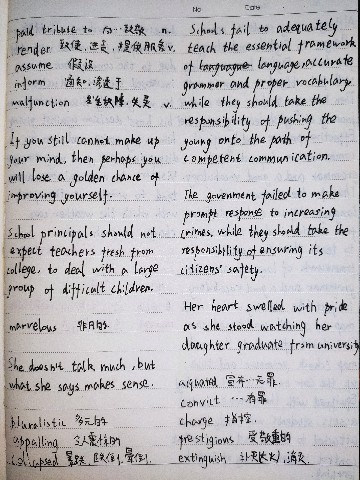 No
Date
paid tribute to 向…致敬 n.
render 致使, 递交, 提供服务 v.
assume 假设
inform 通知, 渗透于
malfunction 发生故障, 失灵 v.
If you still cannot make up
your mind, then perhaps you
will lose a golden chance of
improving yourself.
School principals should not
expect teachers fresh from
college, to deal with a large
group of difficult children.
marvelous 非凡的
She doesn't talk much, but
what she says makes sense.
pluralistic 多元的
appalling 令人震惊的
collapsed 晕倒.
Schools fail to adequately
teach the essential framework
of language language, accurate
grammar and proper vocabulary
while they should take the
responsibility of pushing the
young onto the path of
competent communication.
The govenment failed to make
prompt response to increasing
crimes, while they should take the
responsibility of ensuring its
citizens' safety.
Her heart swelled with pride
as she stood watching her
daughter graduate from university
acquand 宣告…无罪.
convict …有罪
charge 指控.
prestigious 受敬重的
extinguish 扑灭(火), 消灭.